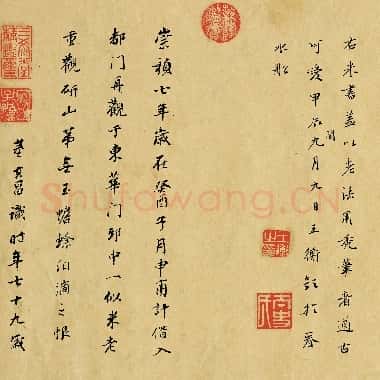 右米書蓋以老法用筆者遒古
可愛甲辰閏九月九日王衡題於春
水船
崇禎六年歲在癸酉子月申甫計偕入
都門再觀于東華門邸中一似米老
重觀研山第無玉蟾蜍泪滴之恨
董其昌識時年七十九歲
Shufawang.CN